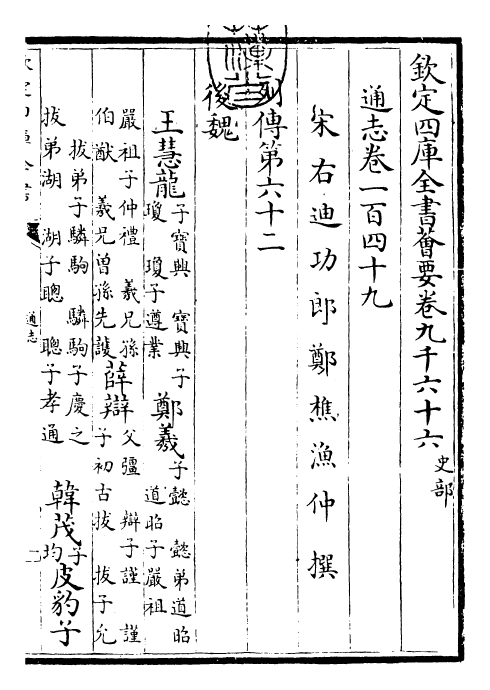 欽定四庫全書薈要卷九千六十六 史部
通志卷一百四十九
宋右迪功郎鄭樵漁仲撰
列傳第六十二
後魏
王慧龍 子寶興 寶興子瓊 瓊子遵業 鄭羲 子懿 懿弟道昭 道昭子嚴祖
嚴祖子仲禮 羲兄孫伯猷 羲兄曾孫先護 薛辯 父彊 辯子謹 謹子初古拔 拔子允
拔弟子驎駒 驎駒子慶之 拔弟湖 湖子聰 聰子孝通 韓茂 子均 皮豹子
通志